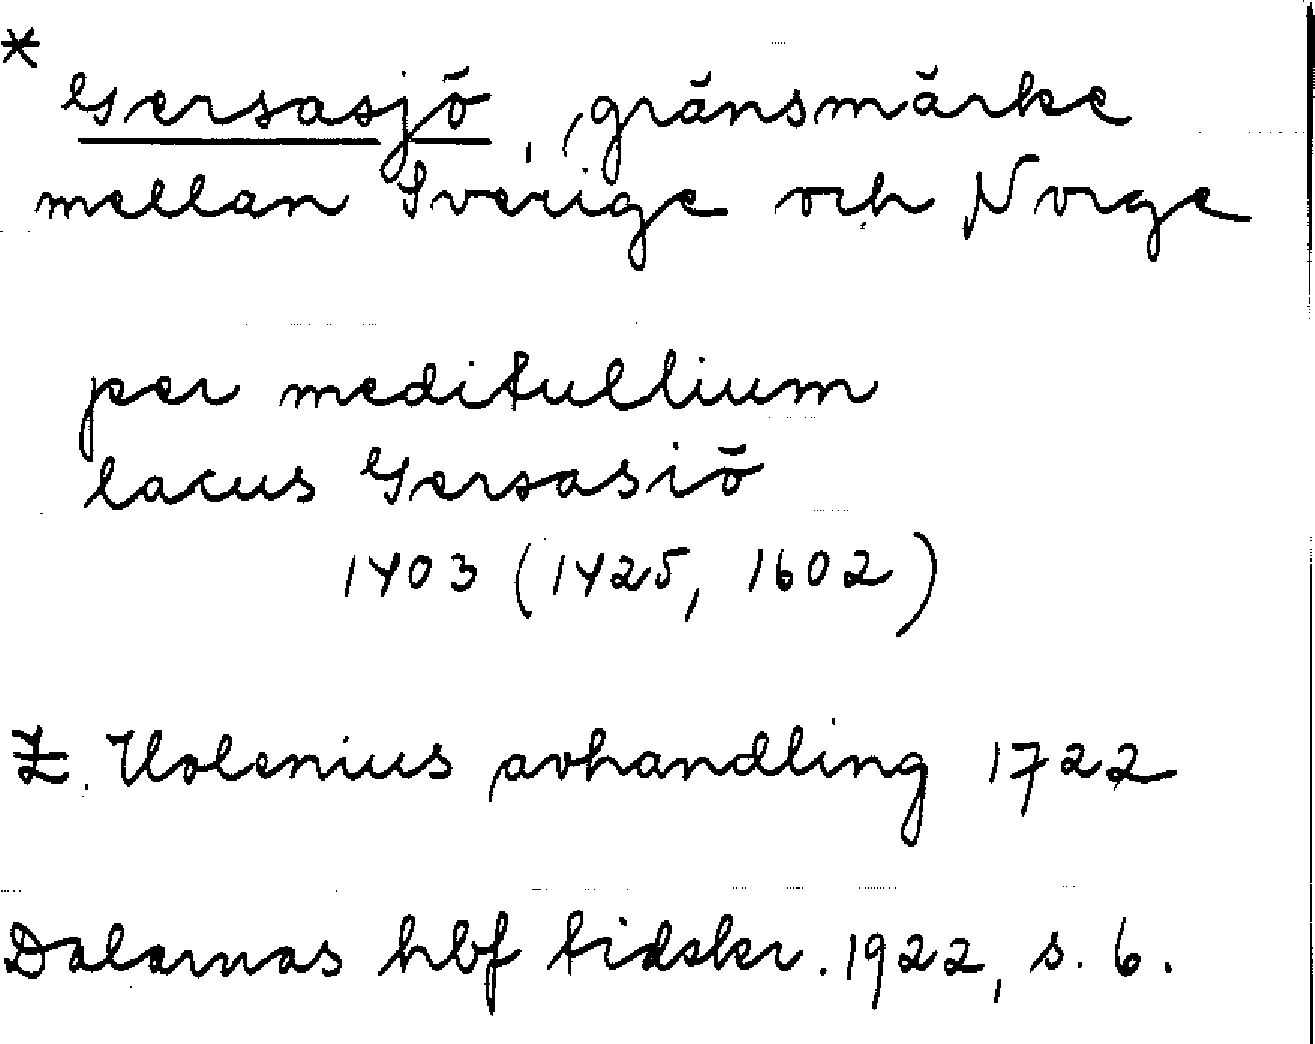 *
Gersasjö, gränsmärke
mellan Sverige och Norge
per meditullium
lacus Gersasiö
1403 (1425, 1602)
Z. Holenius avhandling 1722
Dalarnas hbf tidskr. 1922, s. 6.